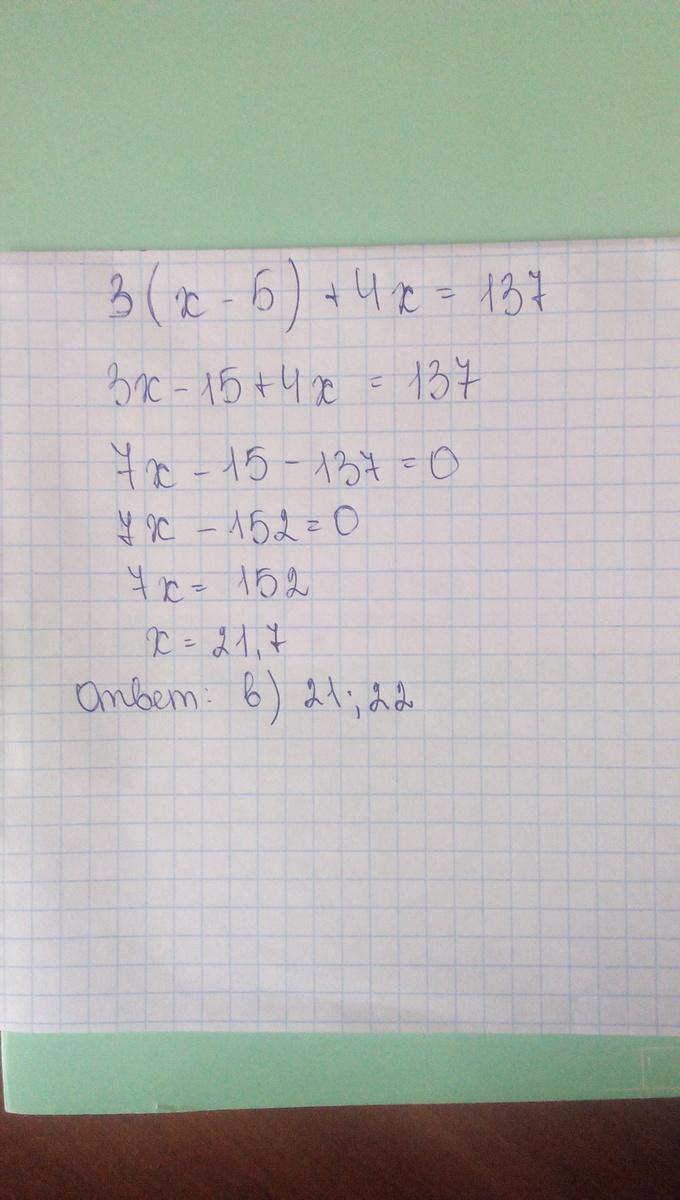 3(x - 5) + 4x = 137
3x - 15 + 4x = 137
7x - 15 - 137 = 0
7x - 152 = 0
7x = 152
x = 21,7
Ответ: в) 21; 22